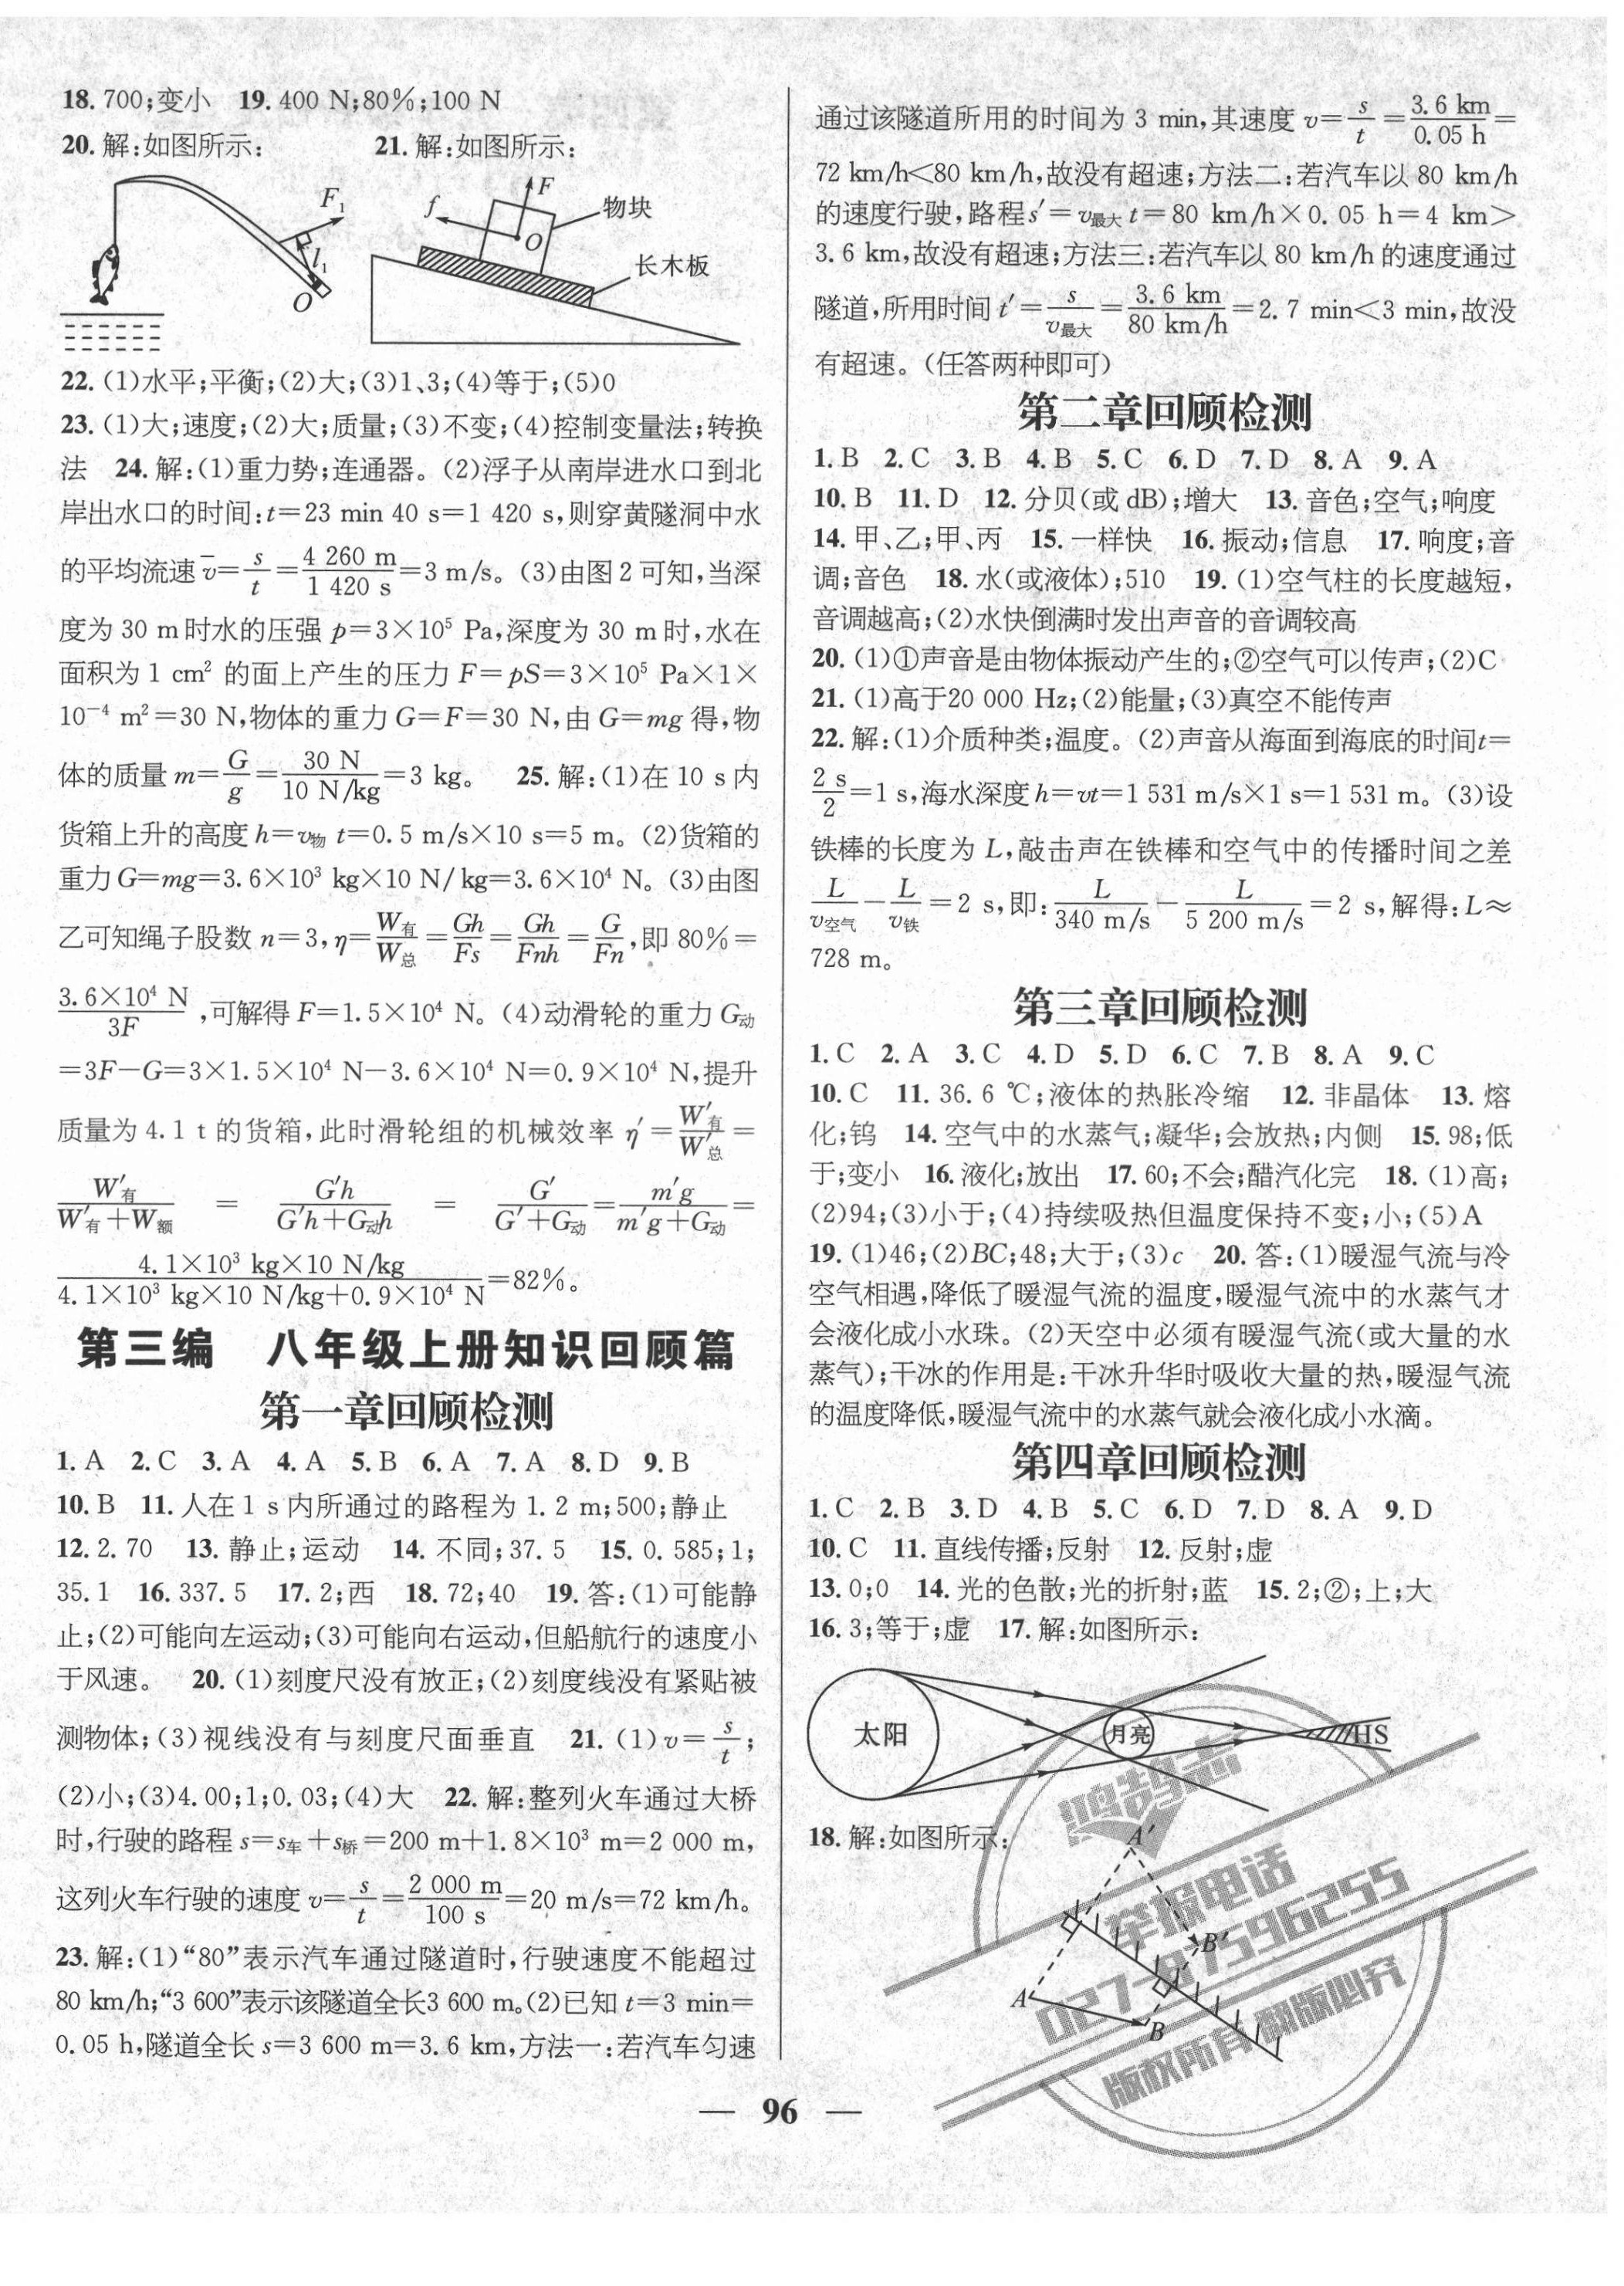 18. 700;变小 19. 400 N;80%;100 N
20. 解:如图所示: 21. 解:如图所示:
F₁
l₁
O
F
f
物块
O
长木板
22. (1)水平;平衡;(2)大;(3)1、3;(4)等于;(5)0
23. (1)大;速度;(2)大;质量;(3)不变;(4)控制变量法;转换
法 24. 解:(1)重力势;连通器。(2)浮子从南岸进水口到北
岸出水口的时间:t=23 min 40 s=1 420 s,则穿黄隧洞中水
的平均流速 v̄=s/t=4 260 m/1 420 s=3 m/s。(3)由图 2 可知,当深
度为 30 m时水的压强 p=3×10⁵ Pa,深度为 30 m 时,水在
面积为 1 cm² 的面上产生的压力 F=pS=3×10⁵ Pa×1×
10⁻⁴ m²=30 N,物体的重力 G=F=30 N,由 G=mg 得,物
体的质量 m=G/g=30 N/10 N/kg=3 kg。 25. 解:(1)在 10 s 内
货箱上升的高度 h=v物 t=0.5 m/s×10 s=5 m。(2)货箱的
重力 G=mg=3.6×10³ kg×10 N/kg=3.6×10⁴ N。(3)由图
乙可知绳子股数 n=3,η=W有/W总=Gh/Fs=Gh/Fnh=G/Fn,即 80%=
3.6×10⁴ N/3F,可解得 F=1.5×10⁴ N。(4)动滑轮的重力 G动
=3F-G=3×1.5×10⁴ N-3.6×10⁴ N=0.9×10⁴ N,提升
质量为 4.1 t 的货箱,此时滑轮组的机械效率 η′=W′有/W′总=
W′有/W′有+W额=G′h/G′h+G动h=G′/G′+G动=m′g/m′g+G动=
4.1×10³ kg×10 N/kg/4.1×10³ kg×10 N/kg+0.9×10⁴ N=82%。
第三编 八年级上册知识回顾篇
第一章回顾检测
1. A 2. C 3. A 4. A 5. B 6. A 7. A 8. D 9. B
10. B 11. 人在 1 s 内所通过的路程为 1.2 m;500;静止
12. 2.70 13. 静止;运动 14. 不同;37.5 15. 0.585;1;
35.1 16. 337.5 17. 2;西 18. 72;40 19. 答:(1)可能静
止;(2)可能向左运动;(3)可能向右运动,但船航行的速度小
于风速。 20. (1)刻度尺没有放正;(2)刻度线没有紧贴被
测物体;(3)视线没有与刻度尺面垂直 21. (1)v=s/t;
(2)小;(3)4.00;1;0.03;(4)大 22. 解:整列火车通过大桥
时,行驶的路程 s=s车+s桥=200 m+1.8×10³ m=2 000 m,
这列火车行驶的速度 v=s/t=2 000 m/100 s=20 m/s=72 km/h。
23. 解:(1)“80”表示汽车通过隧道时,行驶速度不能超过
80 km/h;“3 600”表示该隧道全长3 600 m。(2)已知 t=3 min=
0.05 h,隧道全长 s=3 600 m=3.6 km,方法一:若汽车匀速
通过该隧道所用的时间为 3 min,其速度 v=s/t=3.6 km/0.05 h=
72 km/h<80 km/h,故没有超速;方法二:若汽车以 80 km/h
的速度行驶,路程s′=v最大 t=80 km/h×0.05 h=4 km>
3.6 km,故没有超速;方法三:若汽车以 80 km/h 的速度通过
隧道,所用时间 t′=s/v最大=3.6 km/80 km/h=2.7 min<3 min,故没
有超速。(任答两种即可)
第二章回顾检测
1. B 2. C 3. B 4. B 5. C 6. D 7. D 8. A 9. A
10. B 11. D 12. 分贝(或 dB);增大 13. 音色;空气;响度
14. 甲、乙;甲、丙 15. 一样快 16. 振动;信息 17. 响度;音
调;音色 18. 水(或液体);510 19. (1)空气柱的长度越短,
音调越高;(2)水快倒满时发出声音的音调较高
20. (1)①声音是由物体振动产生的;②空气可以传声;(2)C
21. (1)高于20 000 Hz;(2)能量;(3)真空不能传声
22. 解:(1)介质种类;温度。(2)声音从海面到海底的时间t=
2 s/2=1 s,海水深度 h=vt=1 531 m/s×1 s=1 531 m。(3)设
铁棒的长度为 L,敲击声在铁棒和空气中的传播时间之差
L/v空气-L/v铁=2 s,即:L/340 m/s-L/5 200 m/s=2 s,解得:L≈
728 m。
第三章回顾检测
1. C 2. A 3. C 4. D 5. D 6. C 7. B 8. A 9. C
10. C 11. 36.6 ℃;液体的热胀冷缩 12. 非晶体 13. 熔
化;钨 14. 空气中的水蒸气;凝华;会放热;内侧 15. 98;低
于;变小 16. 液化;放出 17. 60;不会;醋汽化完 18. (1)高;
(2)94;(3)小于;(4)持续吸热但温度保持不变;小;(5)A
19. (1)46;(2)BC;48;大于;(3)c 20. 答:(1)暖湿气流与冷
空气相遇,降低了暖湿气流的温度,暖湿气流中的水蒸气才
会液化成小水珠。(2)天空中必须有暖湿气流(或大量的水
蒸气);干冰的作用是:干冰升华时吸收大量的热,暖湿气流
的温度降低,暖湿气流中的水蒸气就会液化成小水滴。
第四章回顾检测
1. C 2. B 3. D 4. B 5. C 6. D 7. D 8. A 9. D
10. C 11. 直线传播;反射 12. 反射;虚
13. 0;0 14. 光的色散;光的折射;蓝 15. 2;②;上;大
16. 3;等于;虚 17. 解:如图所示:
太阳
月亮
HS
18. 解:如图所示:
A′
B′
A
B
鸿鹄志
举报电话
027-87596255
版权所有 翻版必究
— 96 —